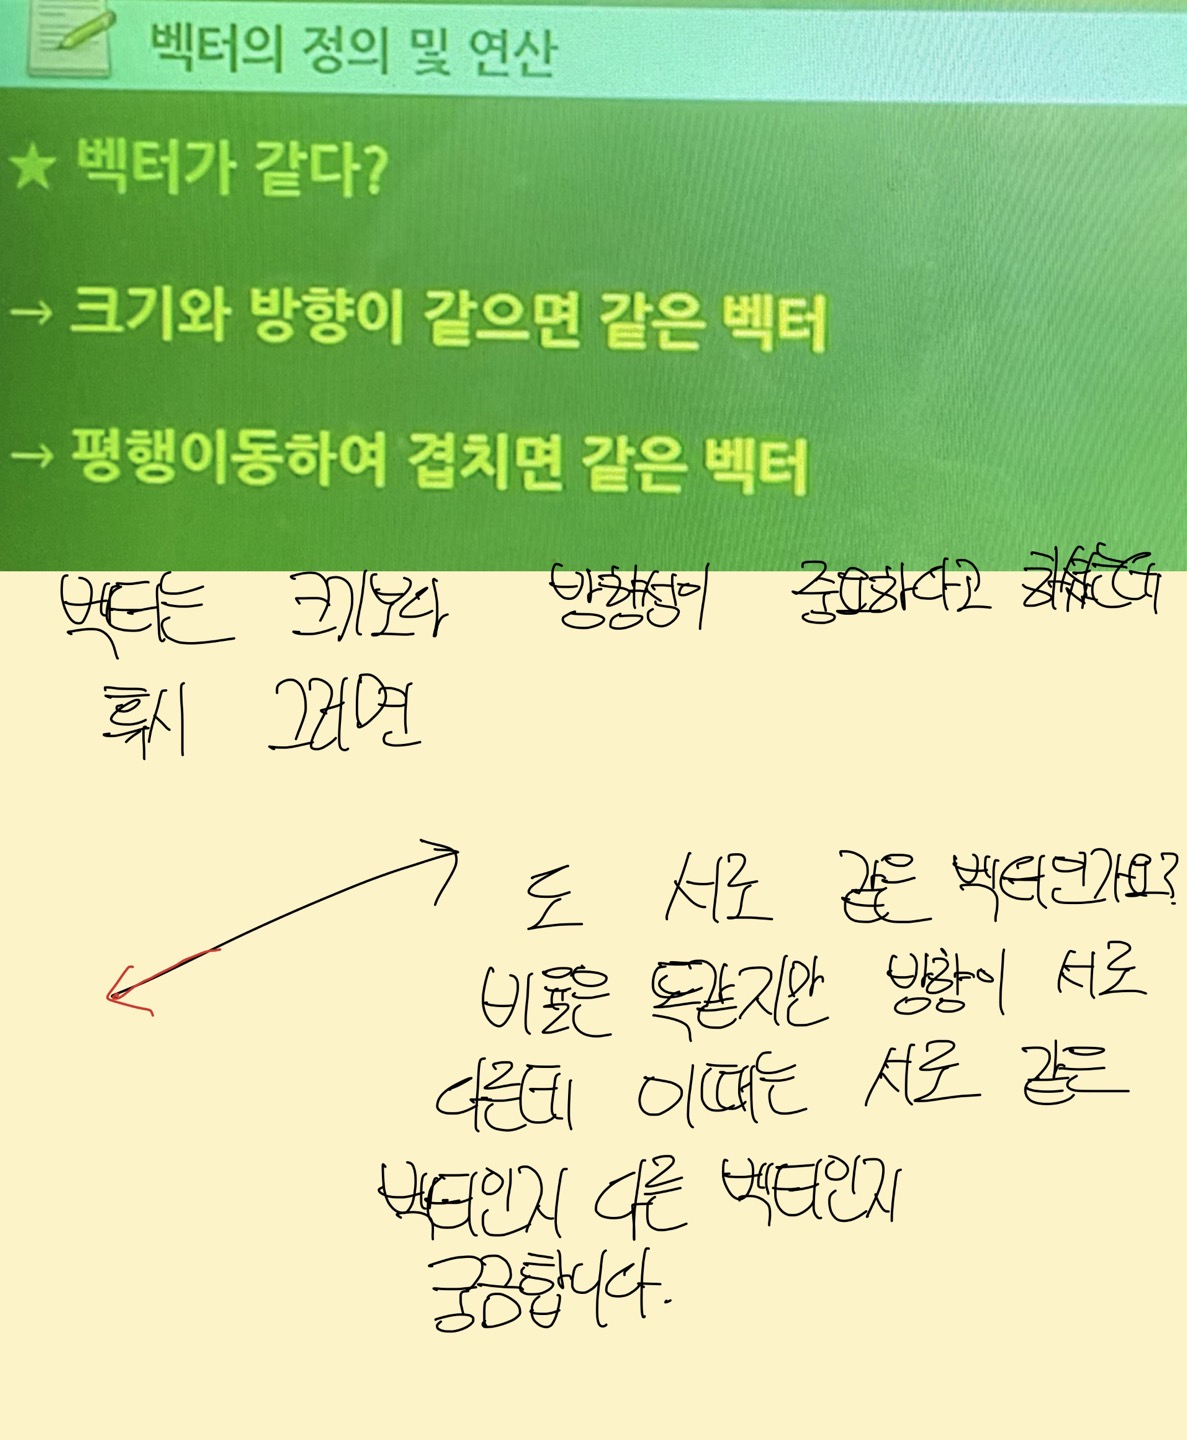 벡터의 정의 및 연산
★ 벡터가 같다?
→ 크기와 방향이 같으면 같은 벡터
→ 평행이동하여 겹치면 같은 벡터
벡터는 크기보다 방향성이 중요하다고 하셨는데
혹시 그러면
도 서로 같은 벡터인가요?
비율은 똑같지만 방향이 서로
다른데 이때는 서로 같은
벡터인지 다른 벡터인지
궁금합니다.